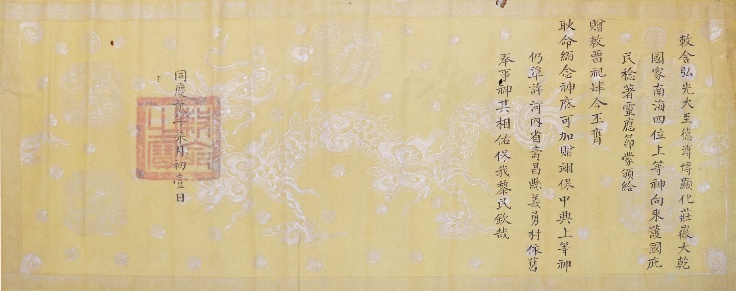 敕含弘光大至德溥博顯化莊徽大乾
國家南海四位上等神向來護國庇
民稔著靈應節蒙頒給
贈敕留祀肆今丕膺
耿命緬念神庥可加贈翊保中興上等神
仍準許河內省壽昌縣義勇村依舊
奉事神其相佑保我黎民欽哉
同慶貳年柒月初壹日
敕命之寶